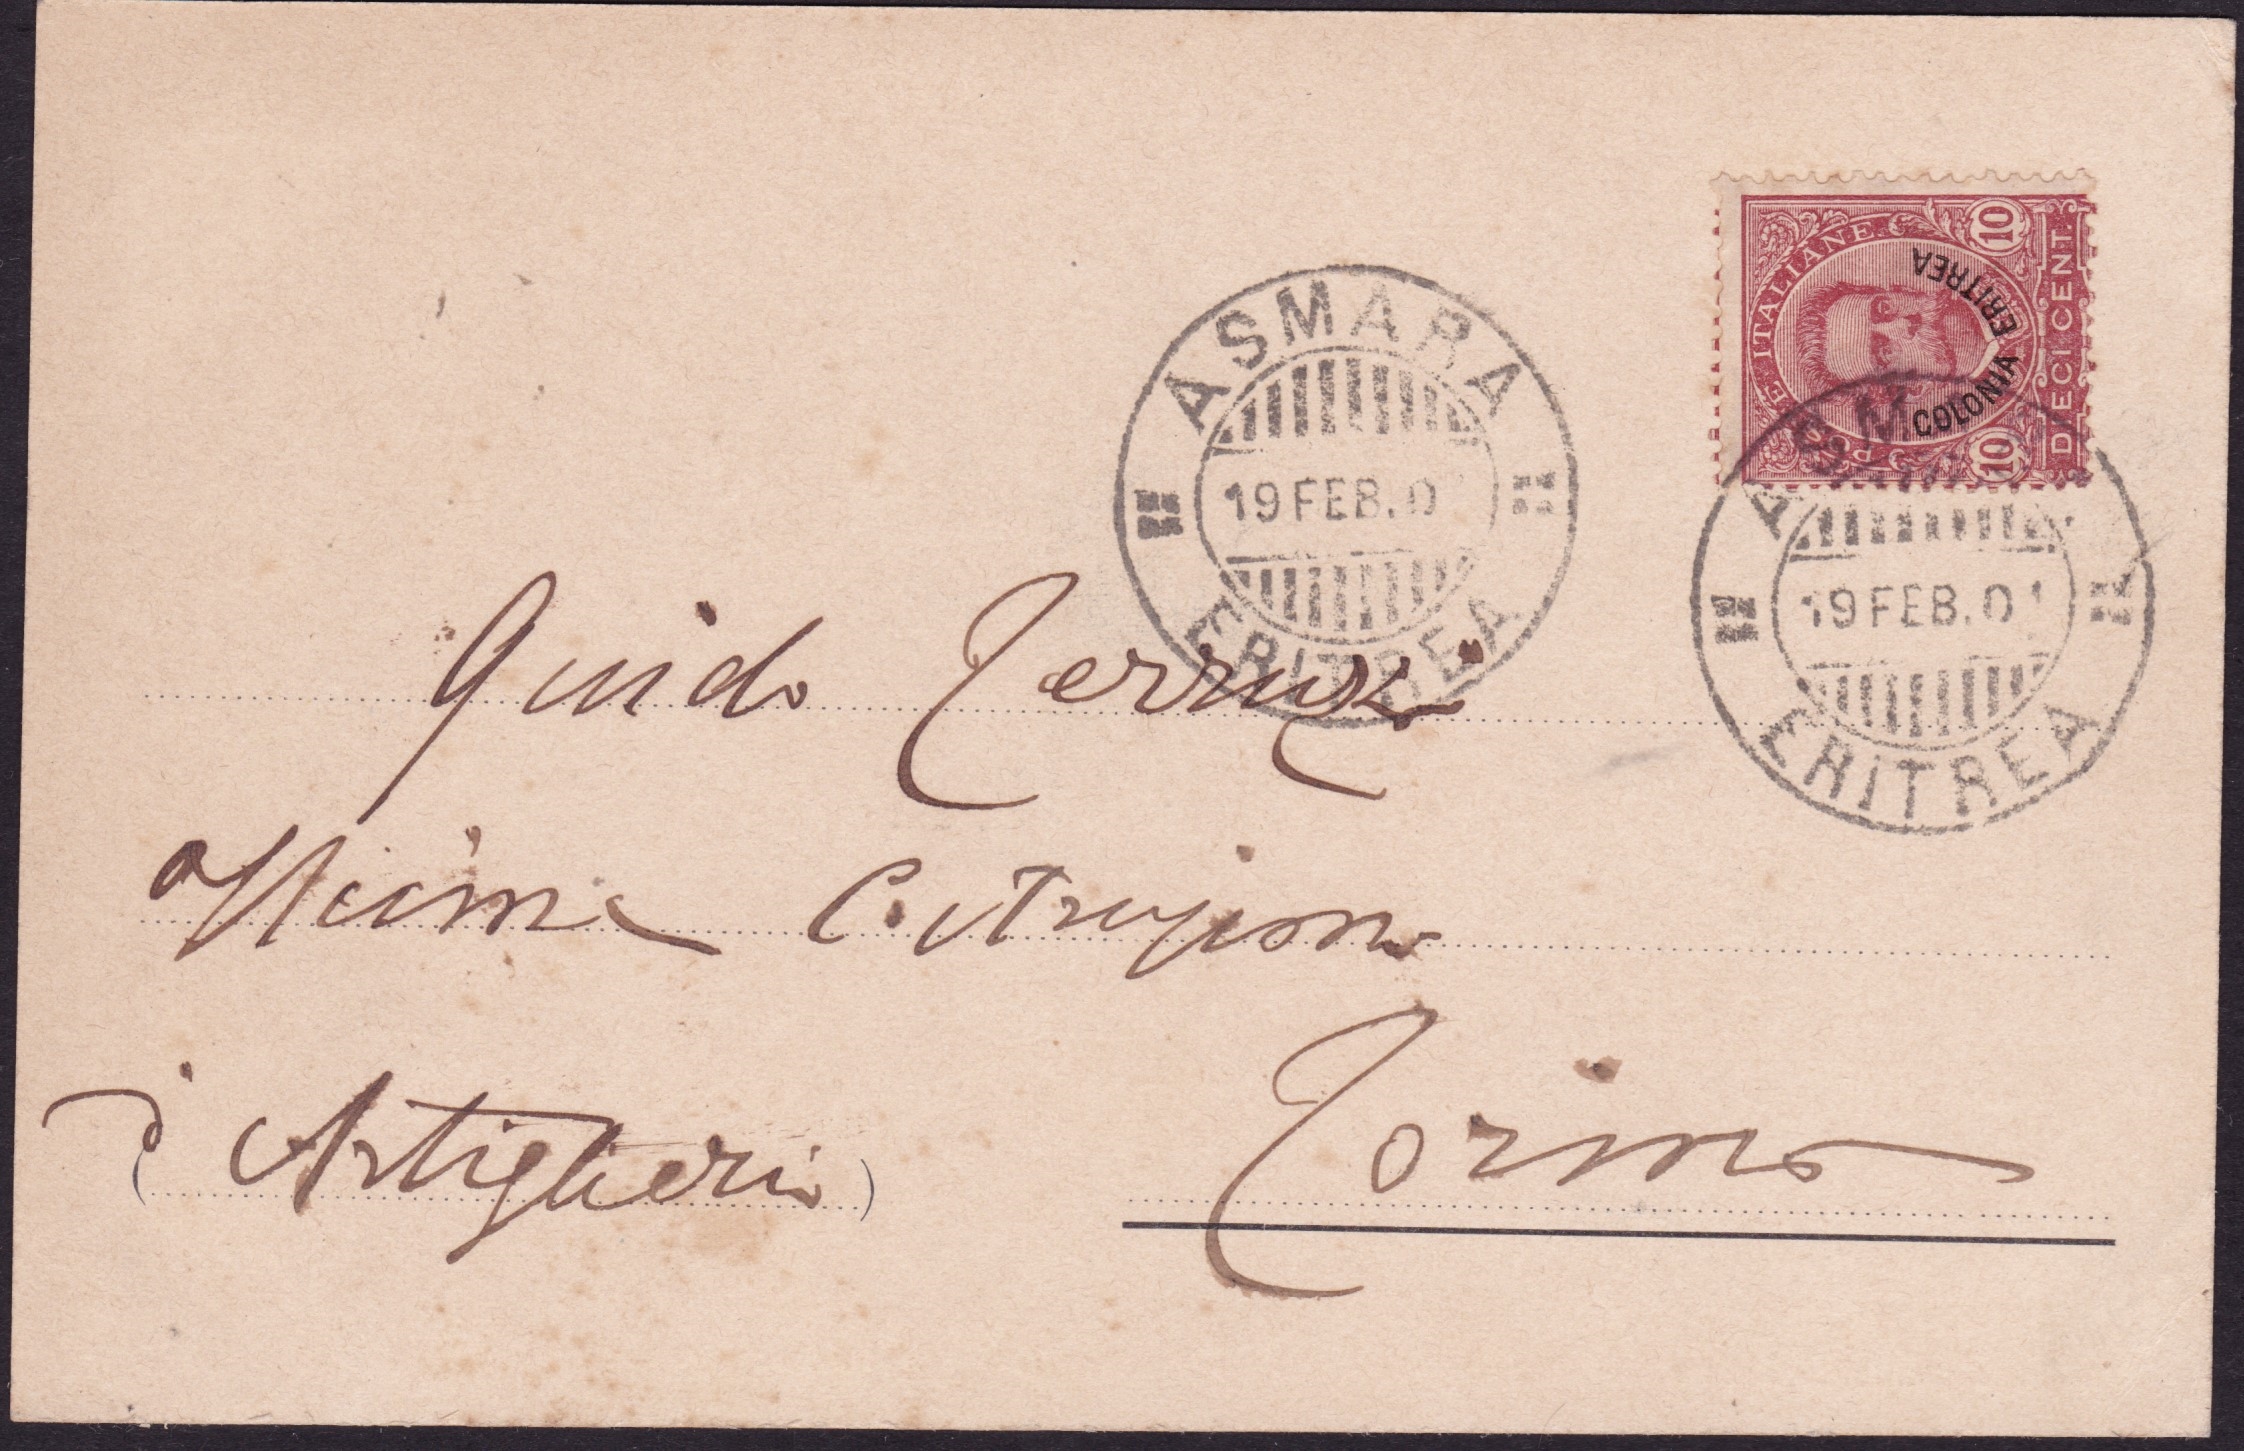 POSTE ITALIANE
10 10
DIECI CENT.
COLONIA ERITREA
ASMARA
19 FEB. 0
ERITREA
ASM
19 FEB. 01
ERITREA
Guido Terruzzi
officina Costruzione
d'Artiglieria
Torino